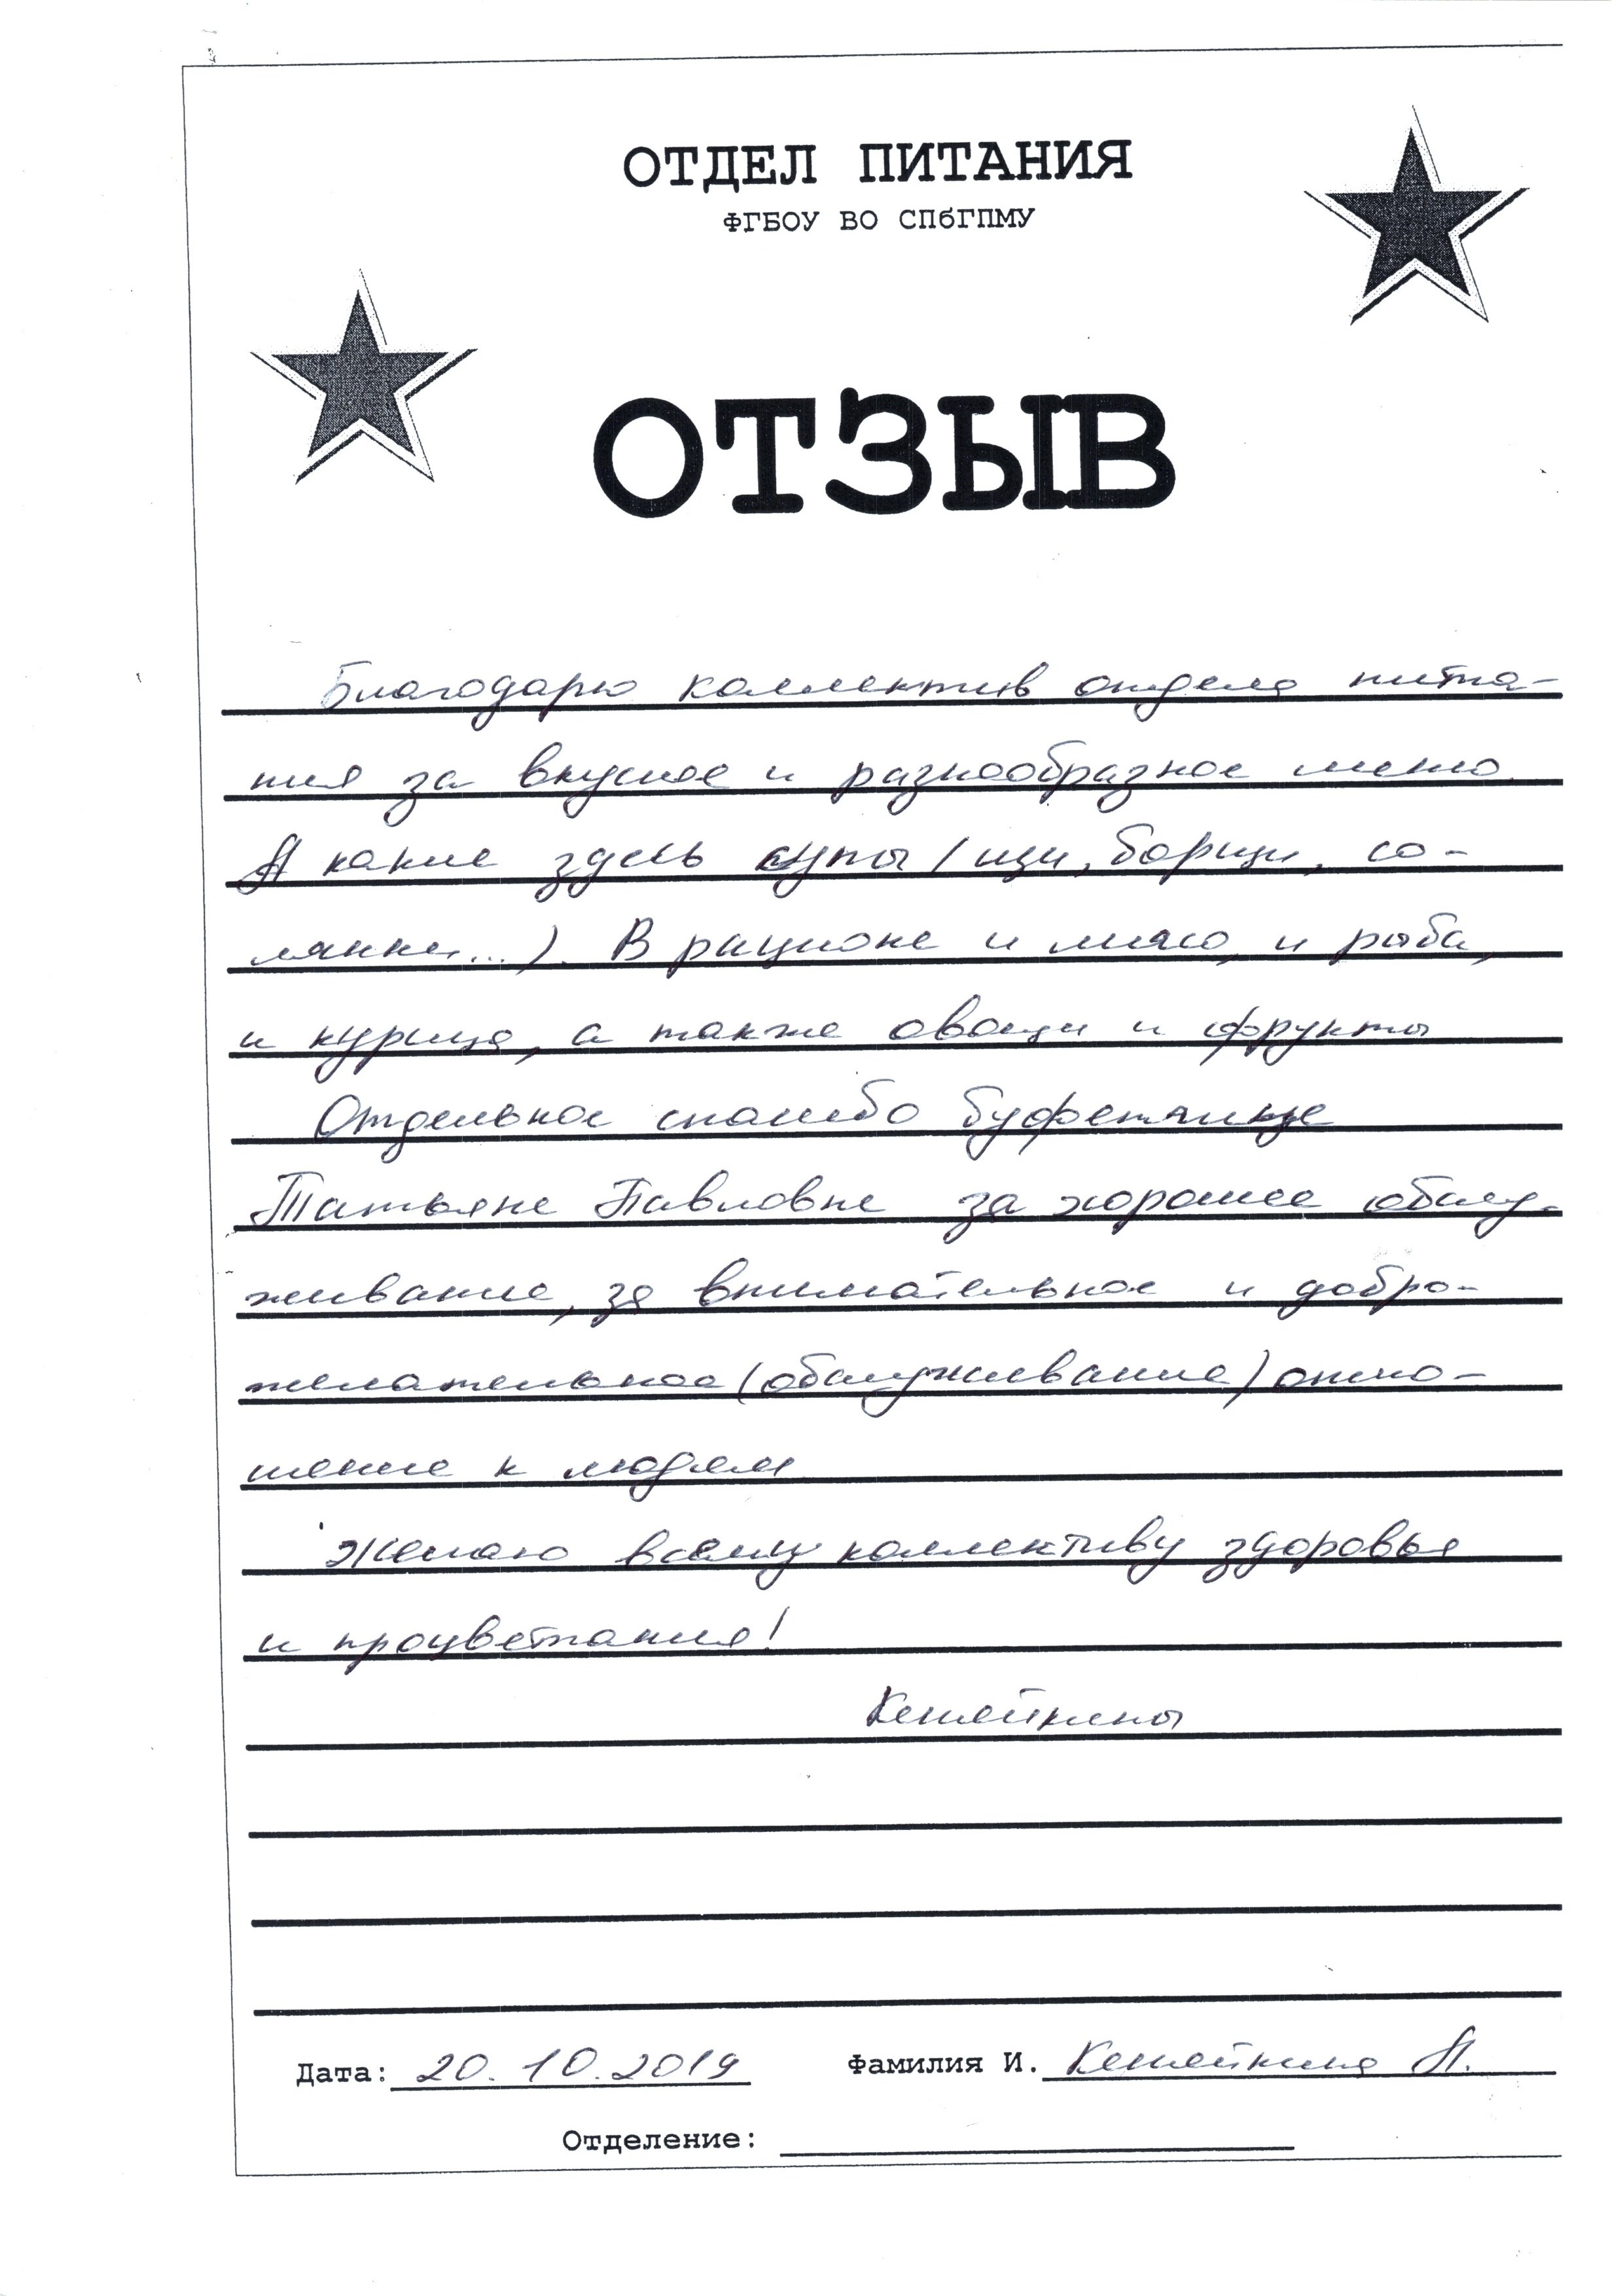 ОТДЕЛ ПИТАНИЯ
ФГБОУ ВО СПбГПМУ
ОТЗЫВ
Благодарю коллектив отдела пита-
ния за вкусное и разнообразное меню.
А какие здесь супы (щи, борщи, со-
лянки...). В рационе и мясо, и рыба,
и курица, а также овощи и фрукты
Отдельное спасибо буфетчице
Татьяне Павловне за хорошее обслу-
живание, за внимательное и добро-
желательное (обслуживание) отно-
шение к людям
Желаю всему коллективу здоровья
и процветания!
Дата: 20.10.2019 Фамилия И. А.
Отделение: